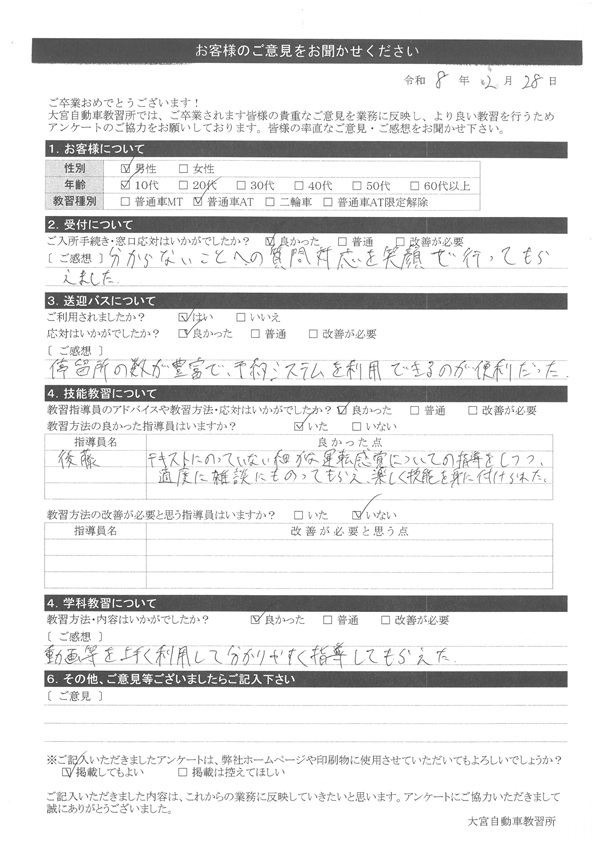 お客様のご意見をお聞かせください
令和 8 年 2 月 28 日
ご卒業おめでとうございます！
大宮自動車教習所では、ご卒業されます皆様の貴重なご意見を業務に反映し、より良い教習を行うため
アンケートのご協力をお願いしております。皆様の率直なご意見・ご感想をお聞かせ下さい。
1. お客様について
性別 ☑男性 □女性
年齢 ☑10代 □20代 □30代 □40代 □50代 □60代以上
教習種別 □普通車MT ☑普通車AT □二輪車 □普通車AT限定解除
2. 受付について
ご入所手続き・窓口応対はいかがでしたか？ ☑良かった □普通 □改善が必要
〔ご感想〕分からないことへの質問対応を笑顔で行ってもら
えました.
3. 送迎バスについて
ご利用されましたか？ ☑はい □いいえ
応対はいかがでしたか？ ☑良かった □普通 □改善が必要
〔ご感想〕
停留所の数が豊富で、予約システムを利用できるのが便利だった.
4. 技能教習について
教習指導員のアドバイスや教習方法・応対はいかがでしたか？ ☑良かった □普通 □改善が必要
教習方法の良かった指導員はいますか？ ☑いた □いない
指導員名 良かった点
後藤 テキストにのっていない細かな運転感覚についての指導をしつつ、
適度に雑談にものってもらえ、楽しく技能を身に付けられた。
教習方法の改善が必要と思う指導員はいますか？ □いた ☑いない
指導員名 改善が必要と思う点
4. 学科教習について
教習方法・内容はいかがでしたか？ ☑良かった □普通 □改善が必要
〔ご感想〕
動画等を上手く利用して分かりやすく指導してもらえた.
6. その他、ご意見等ございましたらご記入下さい
〔ご意見〕
※ご記入いただきましたアンケートは、弊社ホームページや印刷物に使用させていただいてもよろしいでしょうか？
☑掲載してもよい □掲載は控えてほしい
ご記入いただきました内容は、これからの業務に反映していきたいと思います。アンケートにご協力いただきまして
誠にありがとうございました。
大宮自動車教習所